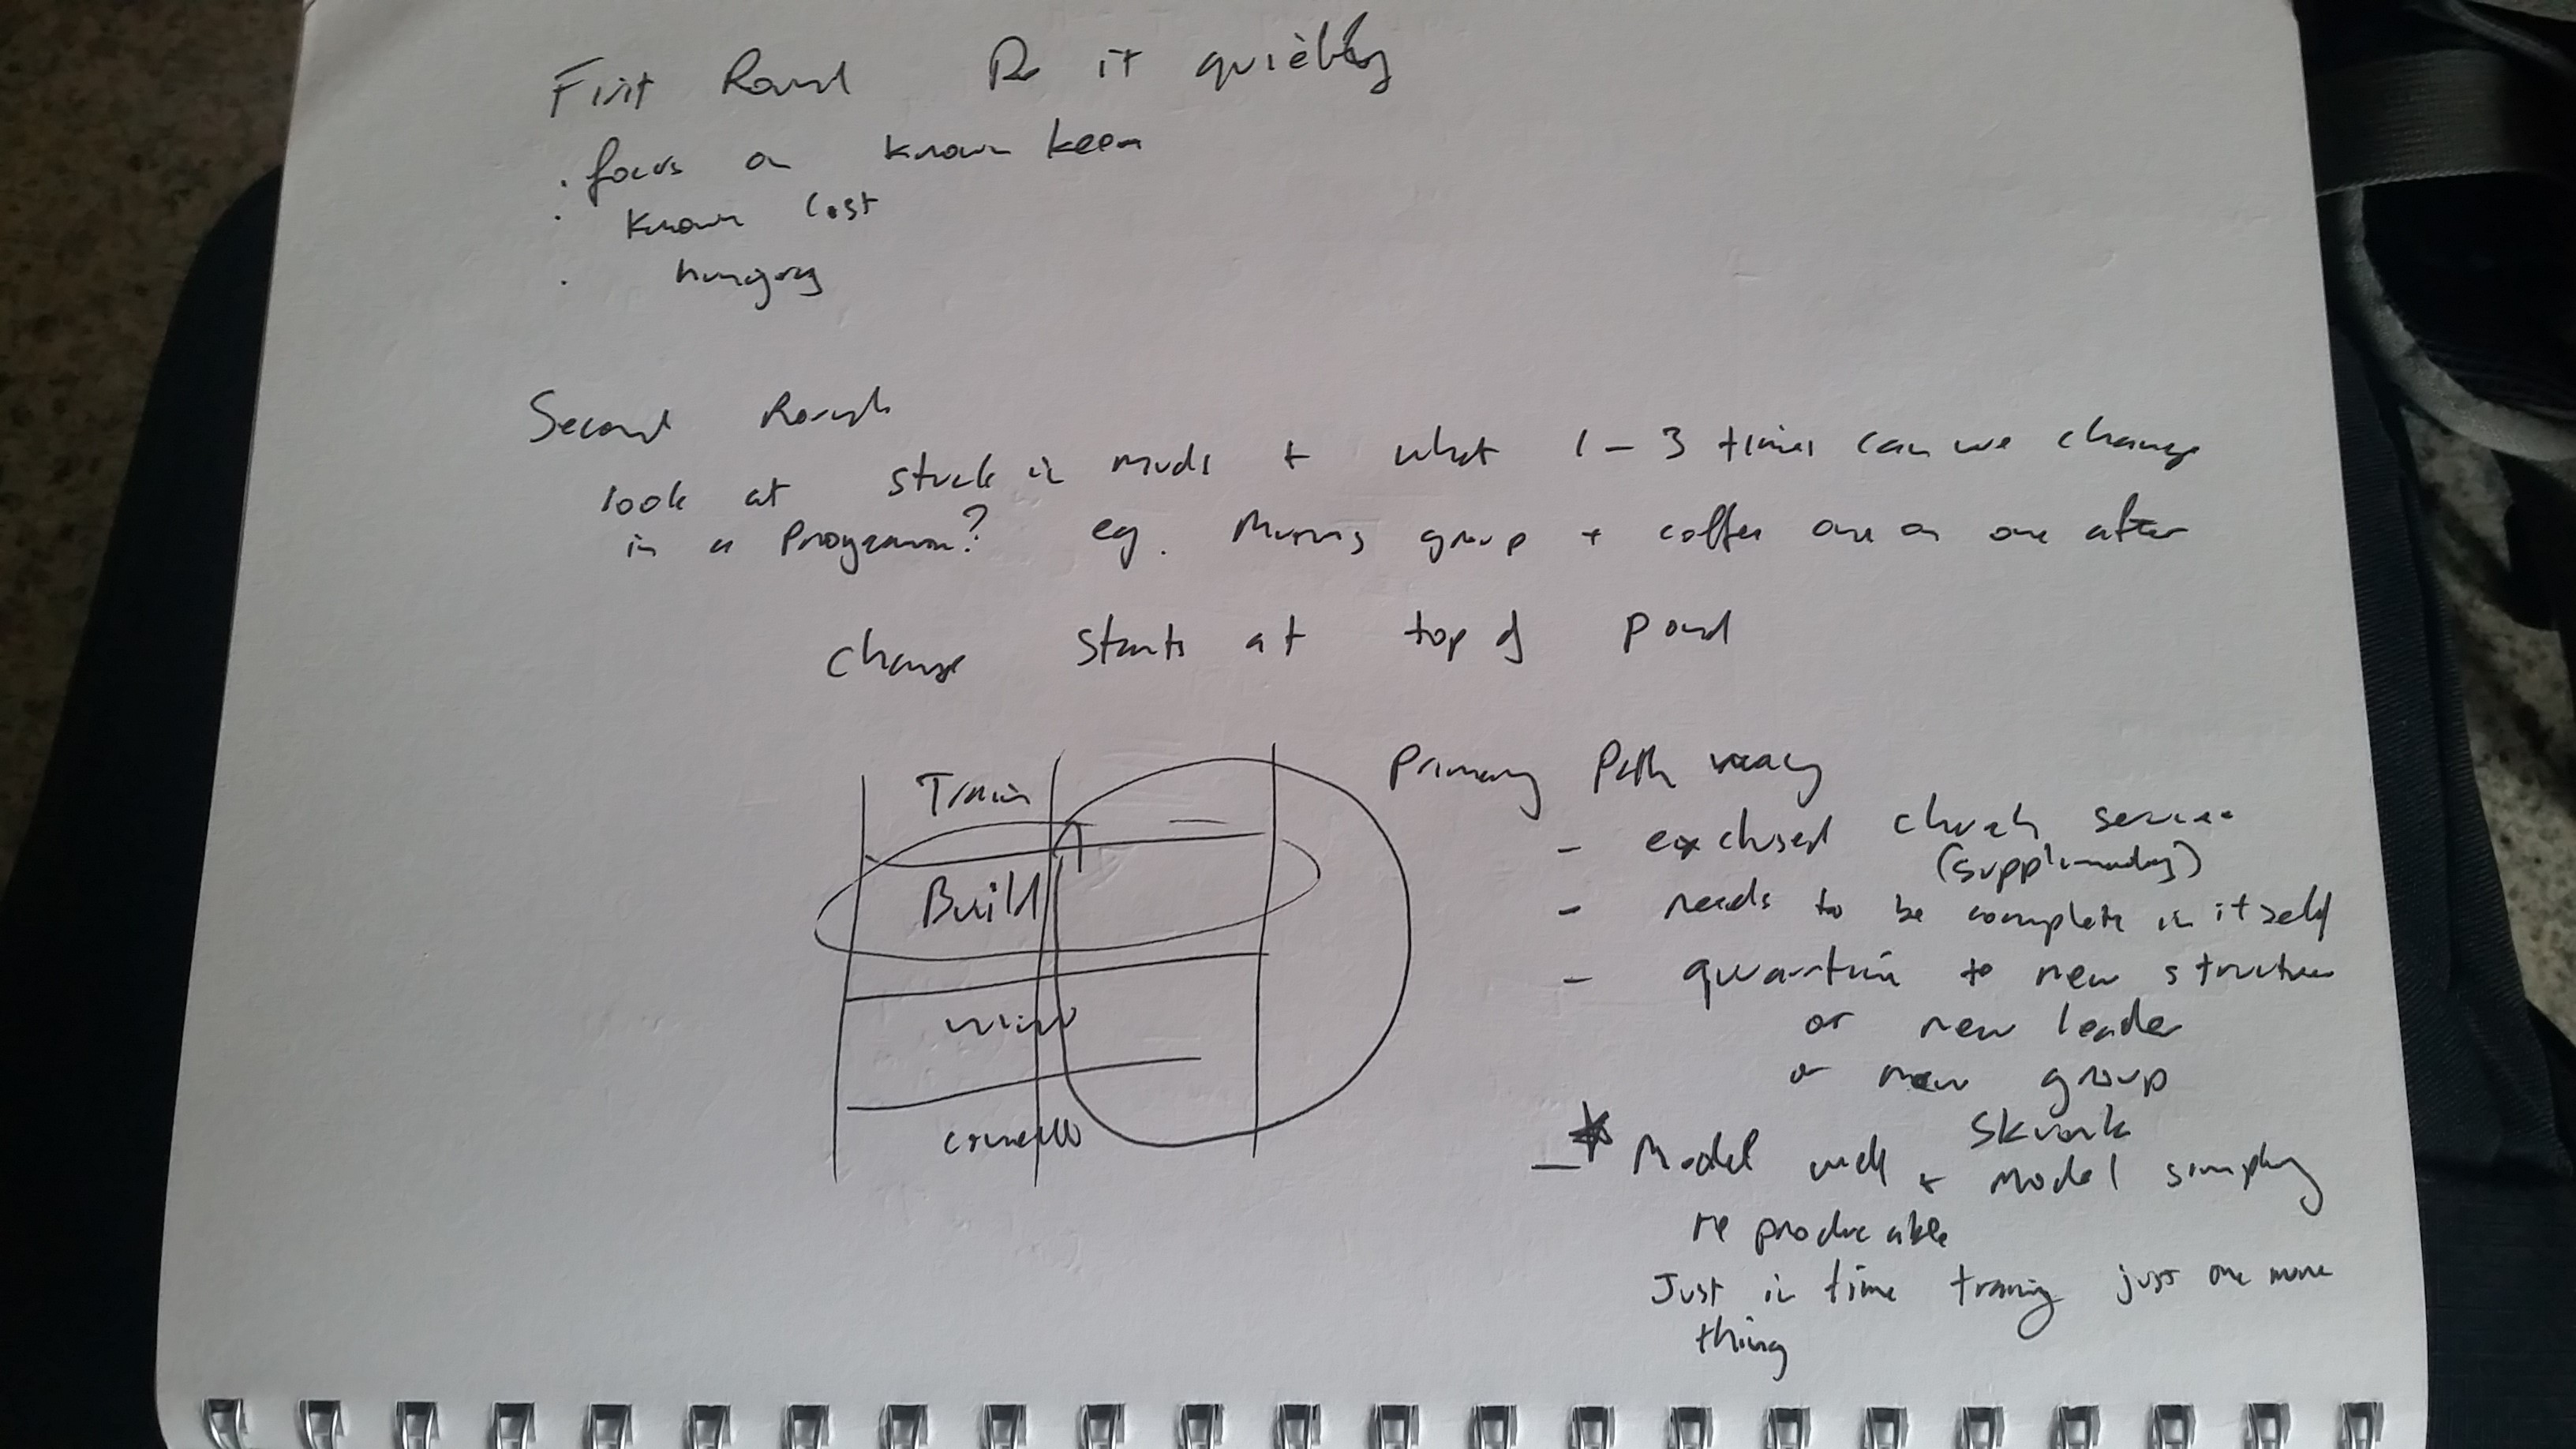 First Round Do it quietly
. focus on known keen
. known cost
. hungry
Second Round
look at stuck in muds + what 1-3 times can we change
in a programm? eg. Mums group + coffee one on one after
change starts at top of pond
Train
Build
win
Primary Path way
- church service
(supplementary)
- needs to be complete in itself
- to new structure
or new leader
or new group
-* Model well + Model simply
reproducable
Just in time training just one more
thing